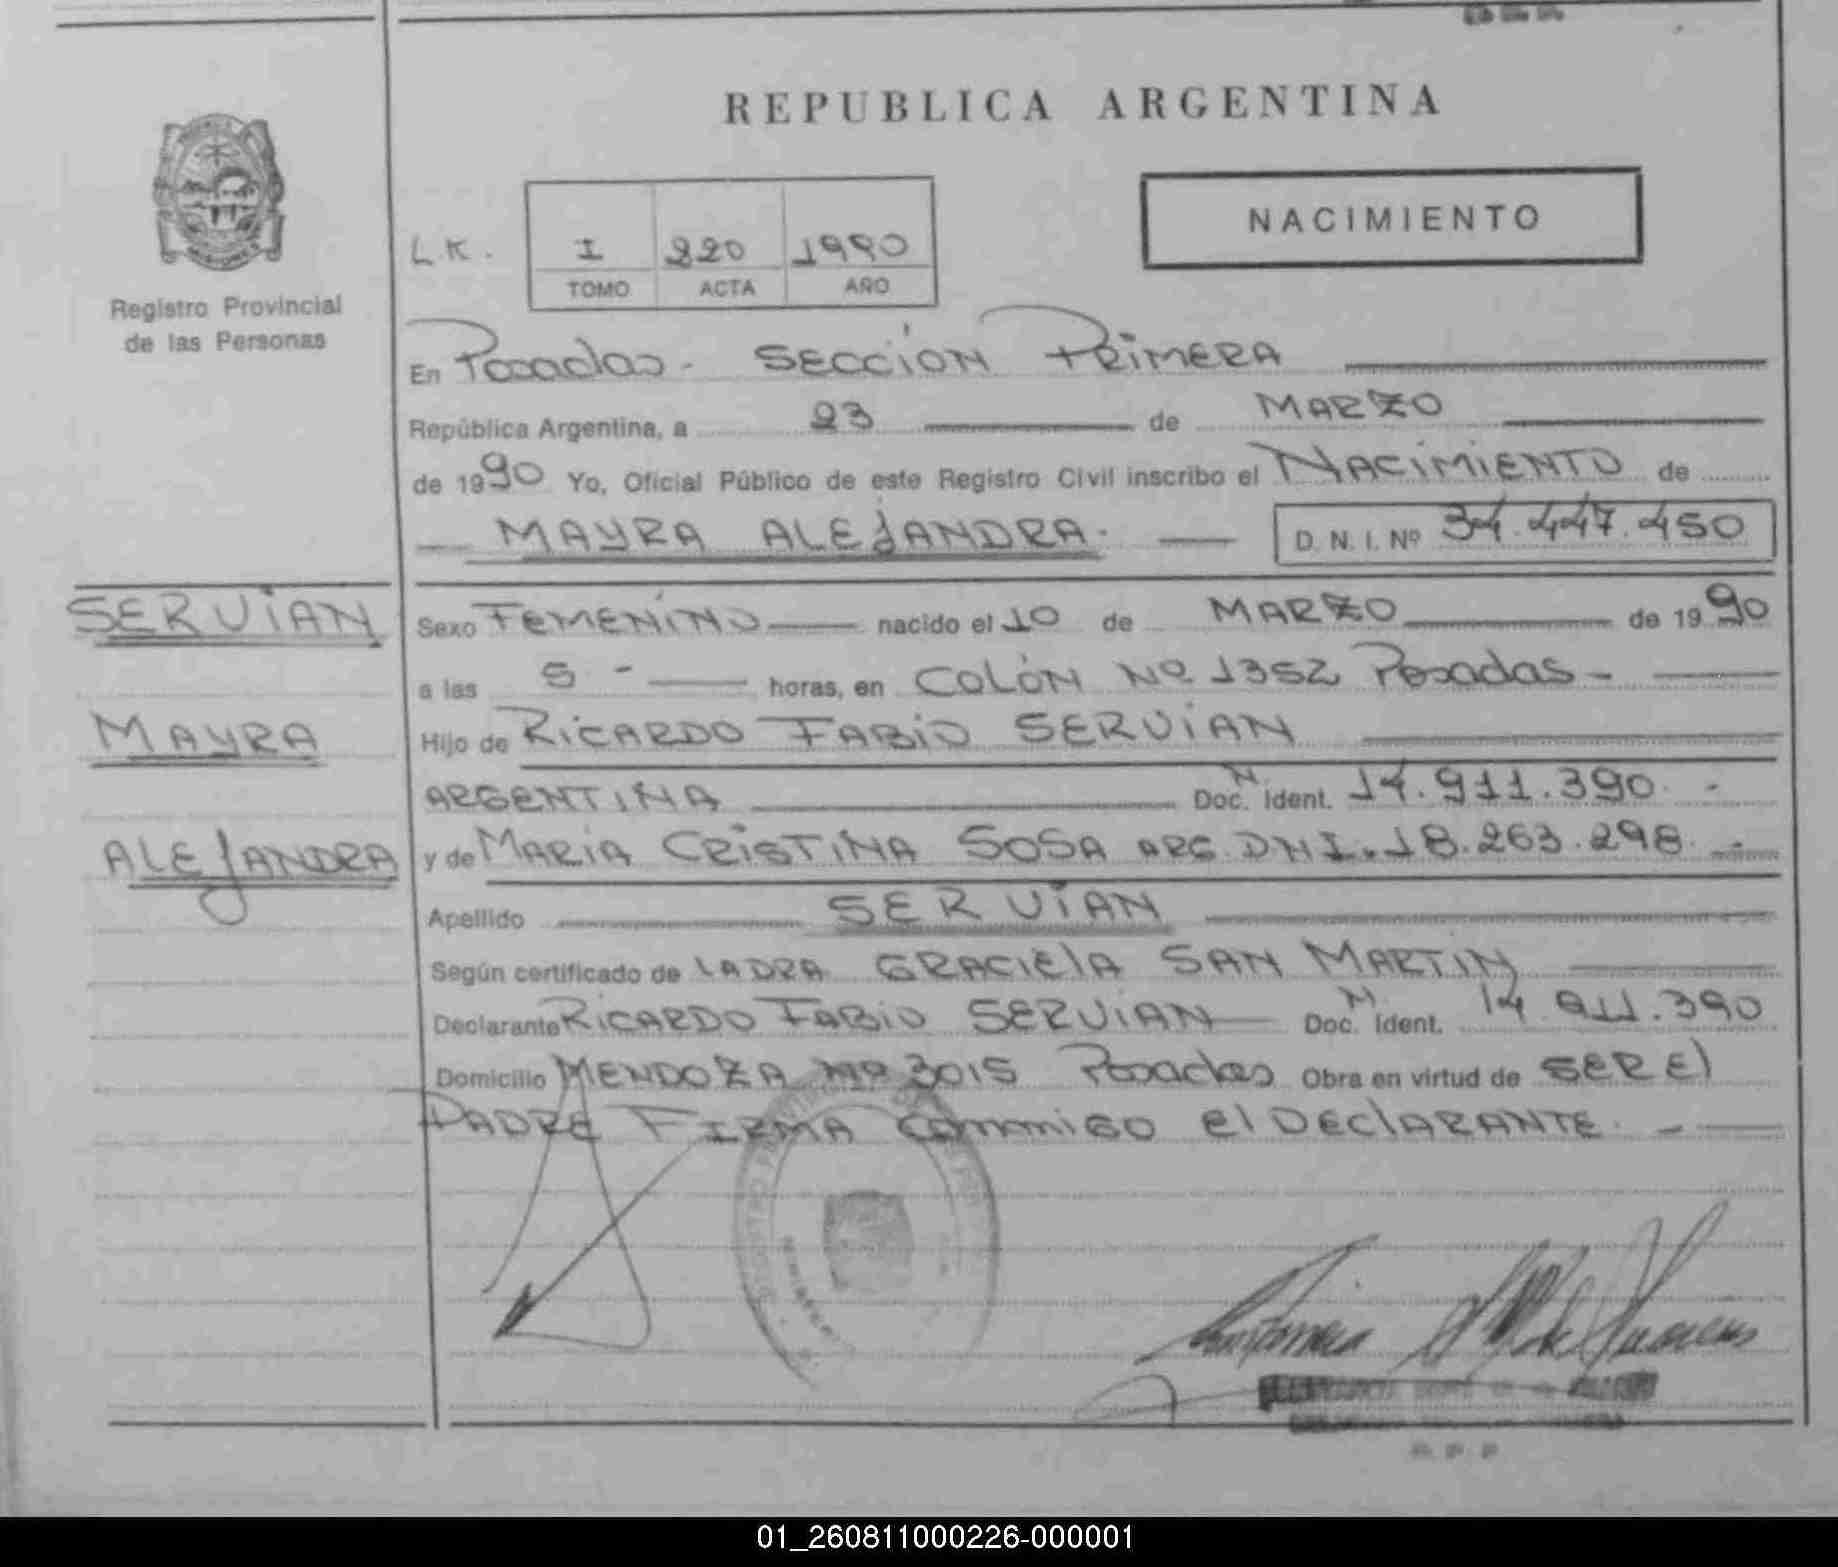 REPUBLICA ARGENTINA
NACIMIENTO
L.K. I 220 1990
TOMO ACTA AÑO
Registro Provincial
de las Personas
En Posadas - SECCIÓN PRIMERA
República Argentina, a 23 de MARZO
de 1990 Yo, Oficial Público de este Registro Civil inscribo el NACIMIENTO de
MAYRA ALEJANDRA. D. N. I. Nº 34.447.450
SERVIAN
MAYRA
ALEJANDRA
Sexo FEMENINO nacido el 10 de MARZO de 1990
a las 5 - horas, en COLÓN Nº 1352 Posadas -
Hijo de RICARDO FABIO SERVIAN
ARGENTINA Doc. N Ident. 14.911.390. -
y de MARIA CRISTINA SOSA ARG. DNI. 18.263.298. -
Apellido SERVIAN
Según certificado de LA DRA. GRACIELA SAN MARTIN
Declarante RICARDO FABIO SERVIAN Doc. N Ident. 14.911.390
Domicilio MENDOZA Nº 3015 Posadas Obra en virtud de SER El
PADRE FIRMA CONMIGO El DECLARANTE. -
REGISTRO PROVINCIAL DE LAS
01_260811000226-000001